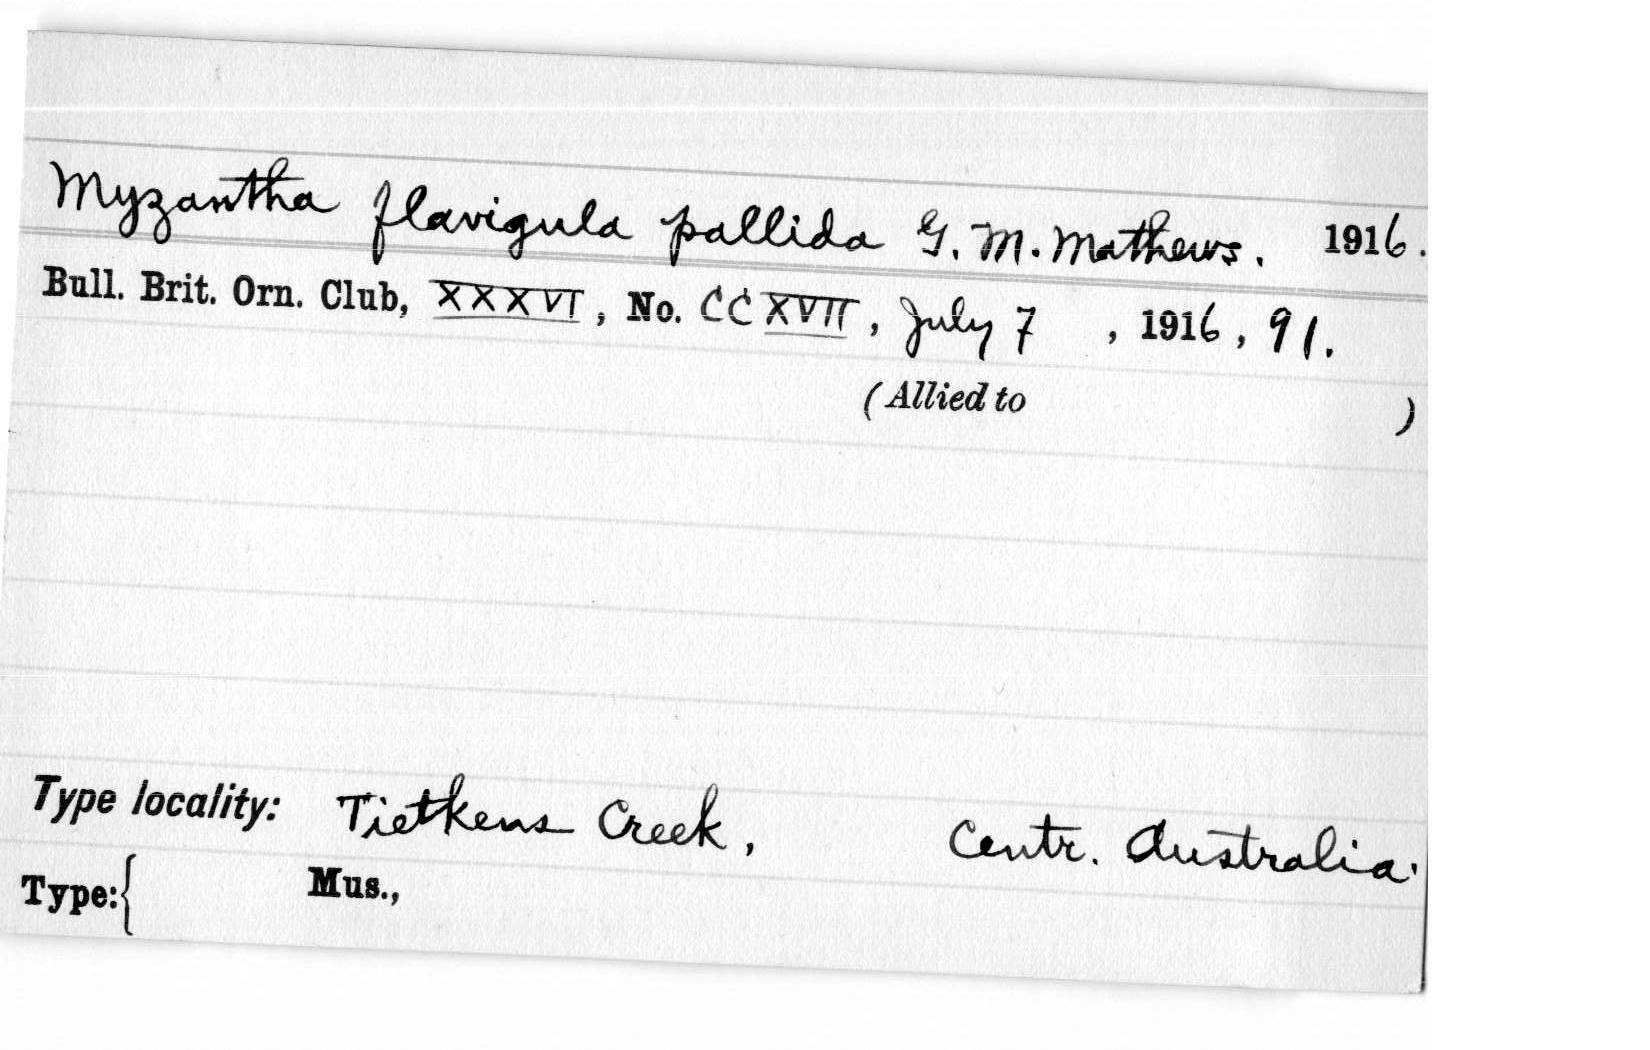 Myzantha flavigula pallida G. M. Mathews. 1916.
Bull. Brit. Orn. Club, XXXVI, No. CCXVII, July 7, 1916, 91.
(Allied to )
Type locality: Tietkens Creek, Centr. Australia.
Type:{ Mus.,